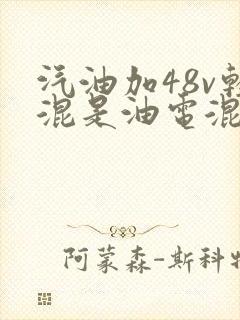 汽油加48v輕
混是油電混
阿蒙森-斯科特